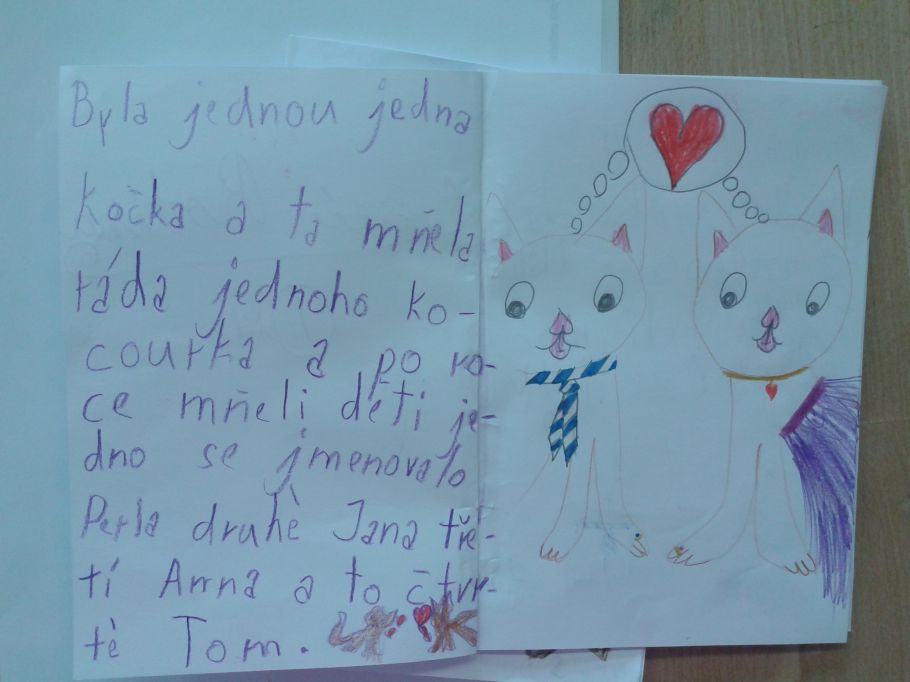 Byla jednou jedna
kočka a ta mňela
ráda jednoho ko-
courka a po ro-
ce mňeli děti je-
dno se jmenovalo
Perla druhè Jana tře-
tí Anna a to čtvr-
tè Tom.